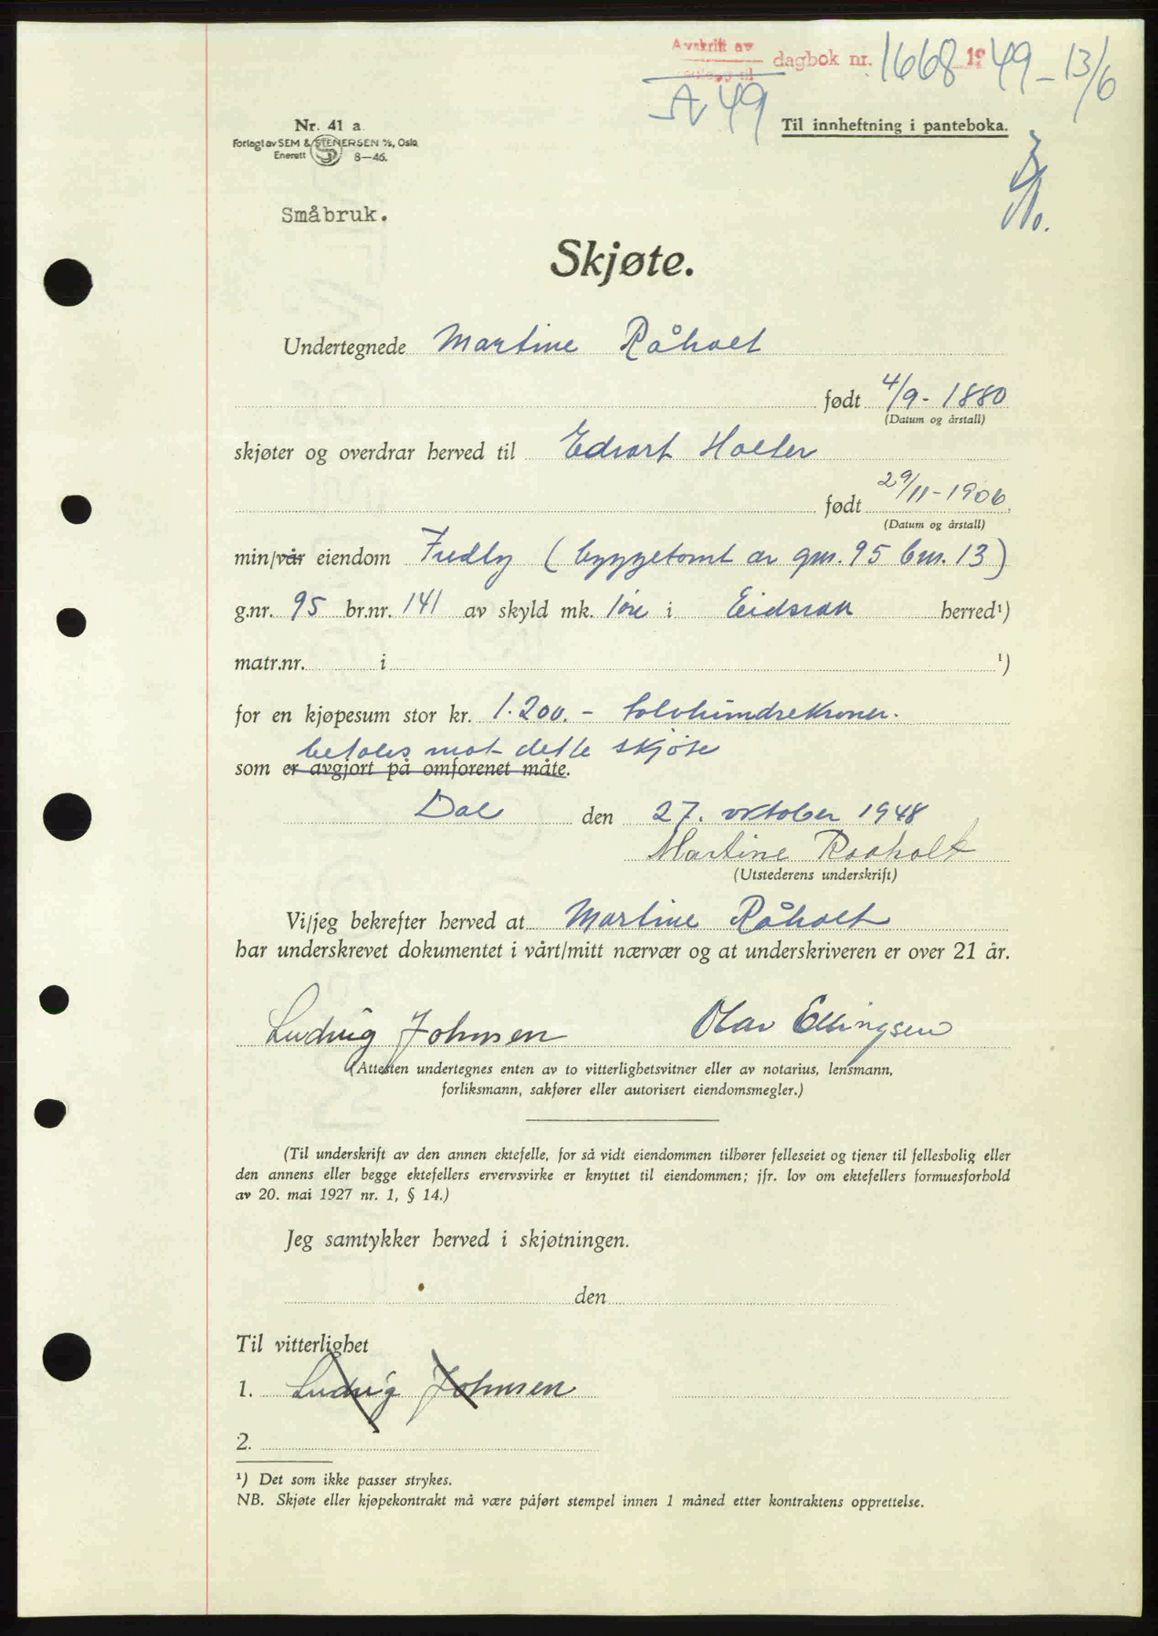 Avskrift av
dagbok nr. 1668 1949 - 13/6
A 49
Nr. 41 a.
Til innheftning i panteboka.
Forlagt av SEM & STENERSEN A/S, Oslo
Enerett 8—46.
Småbruk.
Skjøte.
Undertegnede Martine Råholt
født 4/9 - 1880
(Datum og årstall)
skjøter og overdrar herved til Edvart Holter
født 29/11 - 1906
(Datum og årstall)
min/vår eiendom Fredly (byggetomt av gnr. 95 bnr. 13)
g.nr. 95 br.nr. 141 av skyld mk. 1 øre i Eidsvoll herred¹)
matr.nr. i ¹)
for en kjøpesum stor kr. 1.200.- tolvhundrekroner.
betales mot dette skjøte
som er avgjort på omforenet måte.
Dal den 27. oktober 1948
Martine Raaholt
(Utstederens underskrift)
Vi/jeg bekrefter herved at Martine Råholt
har underskrevet dokumentet i vårt/mitt nærvær og at underskriveren er over 21 år.
Ludvig Johnsen Olav Ellingsen
(Attesten undertegnes enten av to vitterlighetsvitner eller av notarius, lensmann,
forliksmann, sakfører eller autorisert eiendomsmegler.)
(Til underskrift av den annen ektefelle, for så vidt eiendommen tilhører felleseiet og tjener til fellesbolig eller
den annens eller begge ektefellers ervervsvirke er knyttet til eiendommen; jfr. lov om ektefellers formuesforhold
av 20. mai 1927 nr. 1, § 14.)
Jeg samtykker herved i skjøtningen.
den
Til vitterlighet
1. Ludvig Johnsen
2.
¹) Det som ikke passer strykes.
NB. Skjøte eller kjøpekontrakt må være påført stempel innen 1 måned etter kontraktens opprettelse.